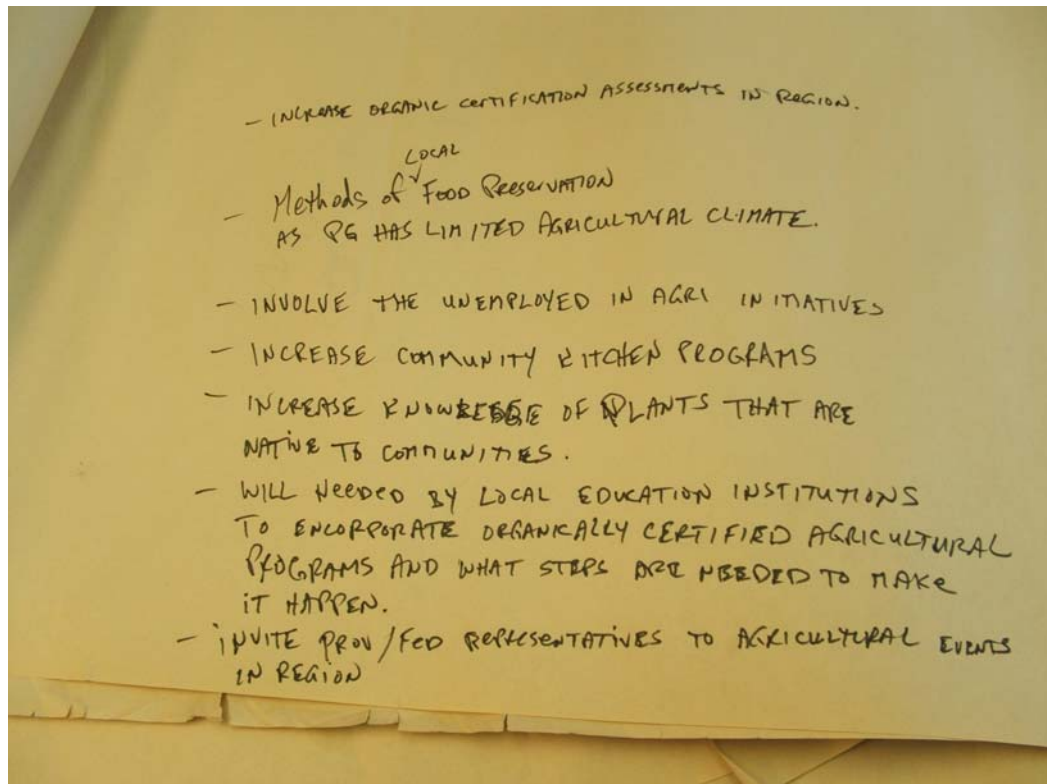 - INCREASE ORGANIC CERTIFICATION ASSESSMENTS IN REGION.
LOCAL
- Methods of FOOD PRESERVATION
AS PG HAS LIMITED AGRICULTURAL CLIMATE.
- INVOLVE THE UNEMPLOYED IN AGRI INITIATIVES
- INCREASE COMMUNITY KITCHEN PROGRAMS
- INCREASE KNOWLEDGE OF PLANTS THAT ARE
NATIVE TO COMMUNITIES.
- WILL NEEDED BY LOCAL EDUCATION INSTITUTIONS
TO ENCORPORATE ORGANICALLY CERTIFIED AGRICULTURAL
PROGRAMS AND WHAT STEPS ARE NEEDED TO MAKE
IT HAPPEN.
- INVITE PROV/FED REPRESENTATIVES TO AGRICULTURAL EVENTS
IN REGION